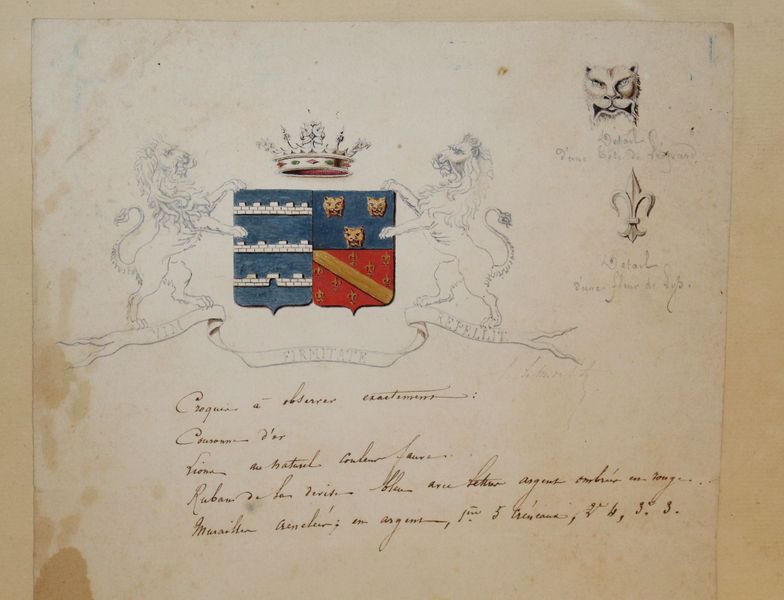 Detail
d'une tête de Léopard
Detail
d'une fleur de Lys.
VIM FIRMITATE REPELLIT
Croquis à observer exactement :
Couronne d'or
Lions au naturel couleur fauve.
Ruban de la devise bleu avec lettres argent ombrées en rouge.
Murailles crenelées en argent, 1ère 5 créneaux, 2e 4, 3e 3.